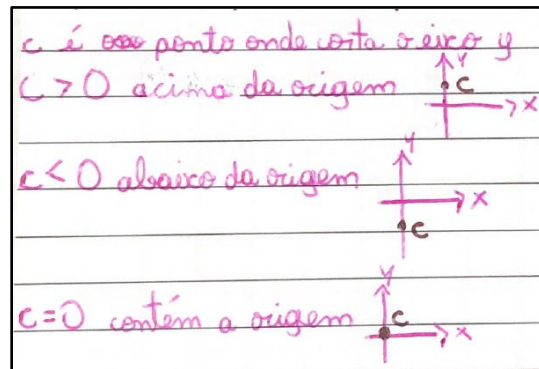 c é ponto onde corta o eixo y
C > 0 acima da origem
y
c
x
c < 0 abaixo da origem
y
x
c
c = 0 contém a origem
y
c
x